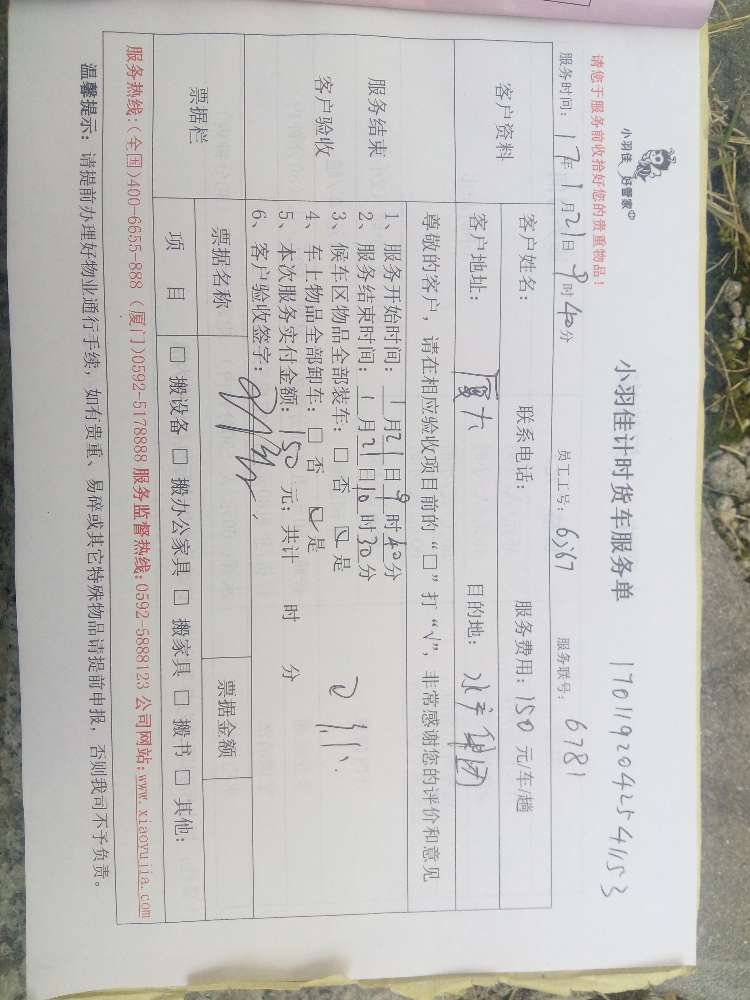 小羽佳 好管家
小羽佳计时货车服务单 1701192042541153
请您于服务前收拾好您的贵重物品！
服务时间：17年1月21日9时40分 员工工号：6567 服务联号：6781
客户资料
客户姓名： 联系电话： 服务费用：150元/车/趟
客户地址：厦大 目的地：水产集团
服务结束
客户验收
尊敬的客户，请在相应验收项目前的“□”打“√”，非常感谢您的评价和意见
1、服务开始时间：1月21日9时40分
2、服务结束时间：1月21日10时30分
3、候车区物品全部装车：□ 否 ☑ 是
4、车上物品全部卸车：□ 否 ☑ 是
5、本次服务实付金额：150元；共计 时 分
6、客户验收签字：
票据栏
票据名称 票据金额
项 目 □ 搬设备 □ 搬办公家具 □ 搬家具 □ 搬书 □ 其他：
服务热线：(全国)400-6655-888 (厦门)0592-5178888 服务监督热线：0592-5888123 公司网站：www.xiaoyujia.com
温馨提示：请提前办理好物业通行手续，如有贵重、易碎或其它特殊物品请提前申报，否则我司不予负责。